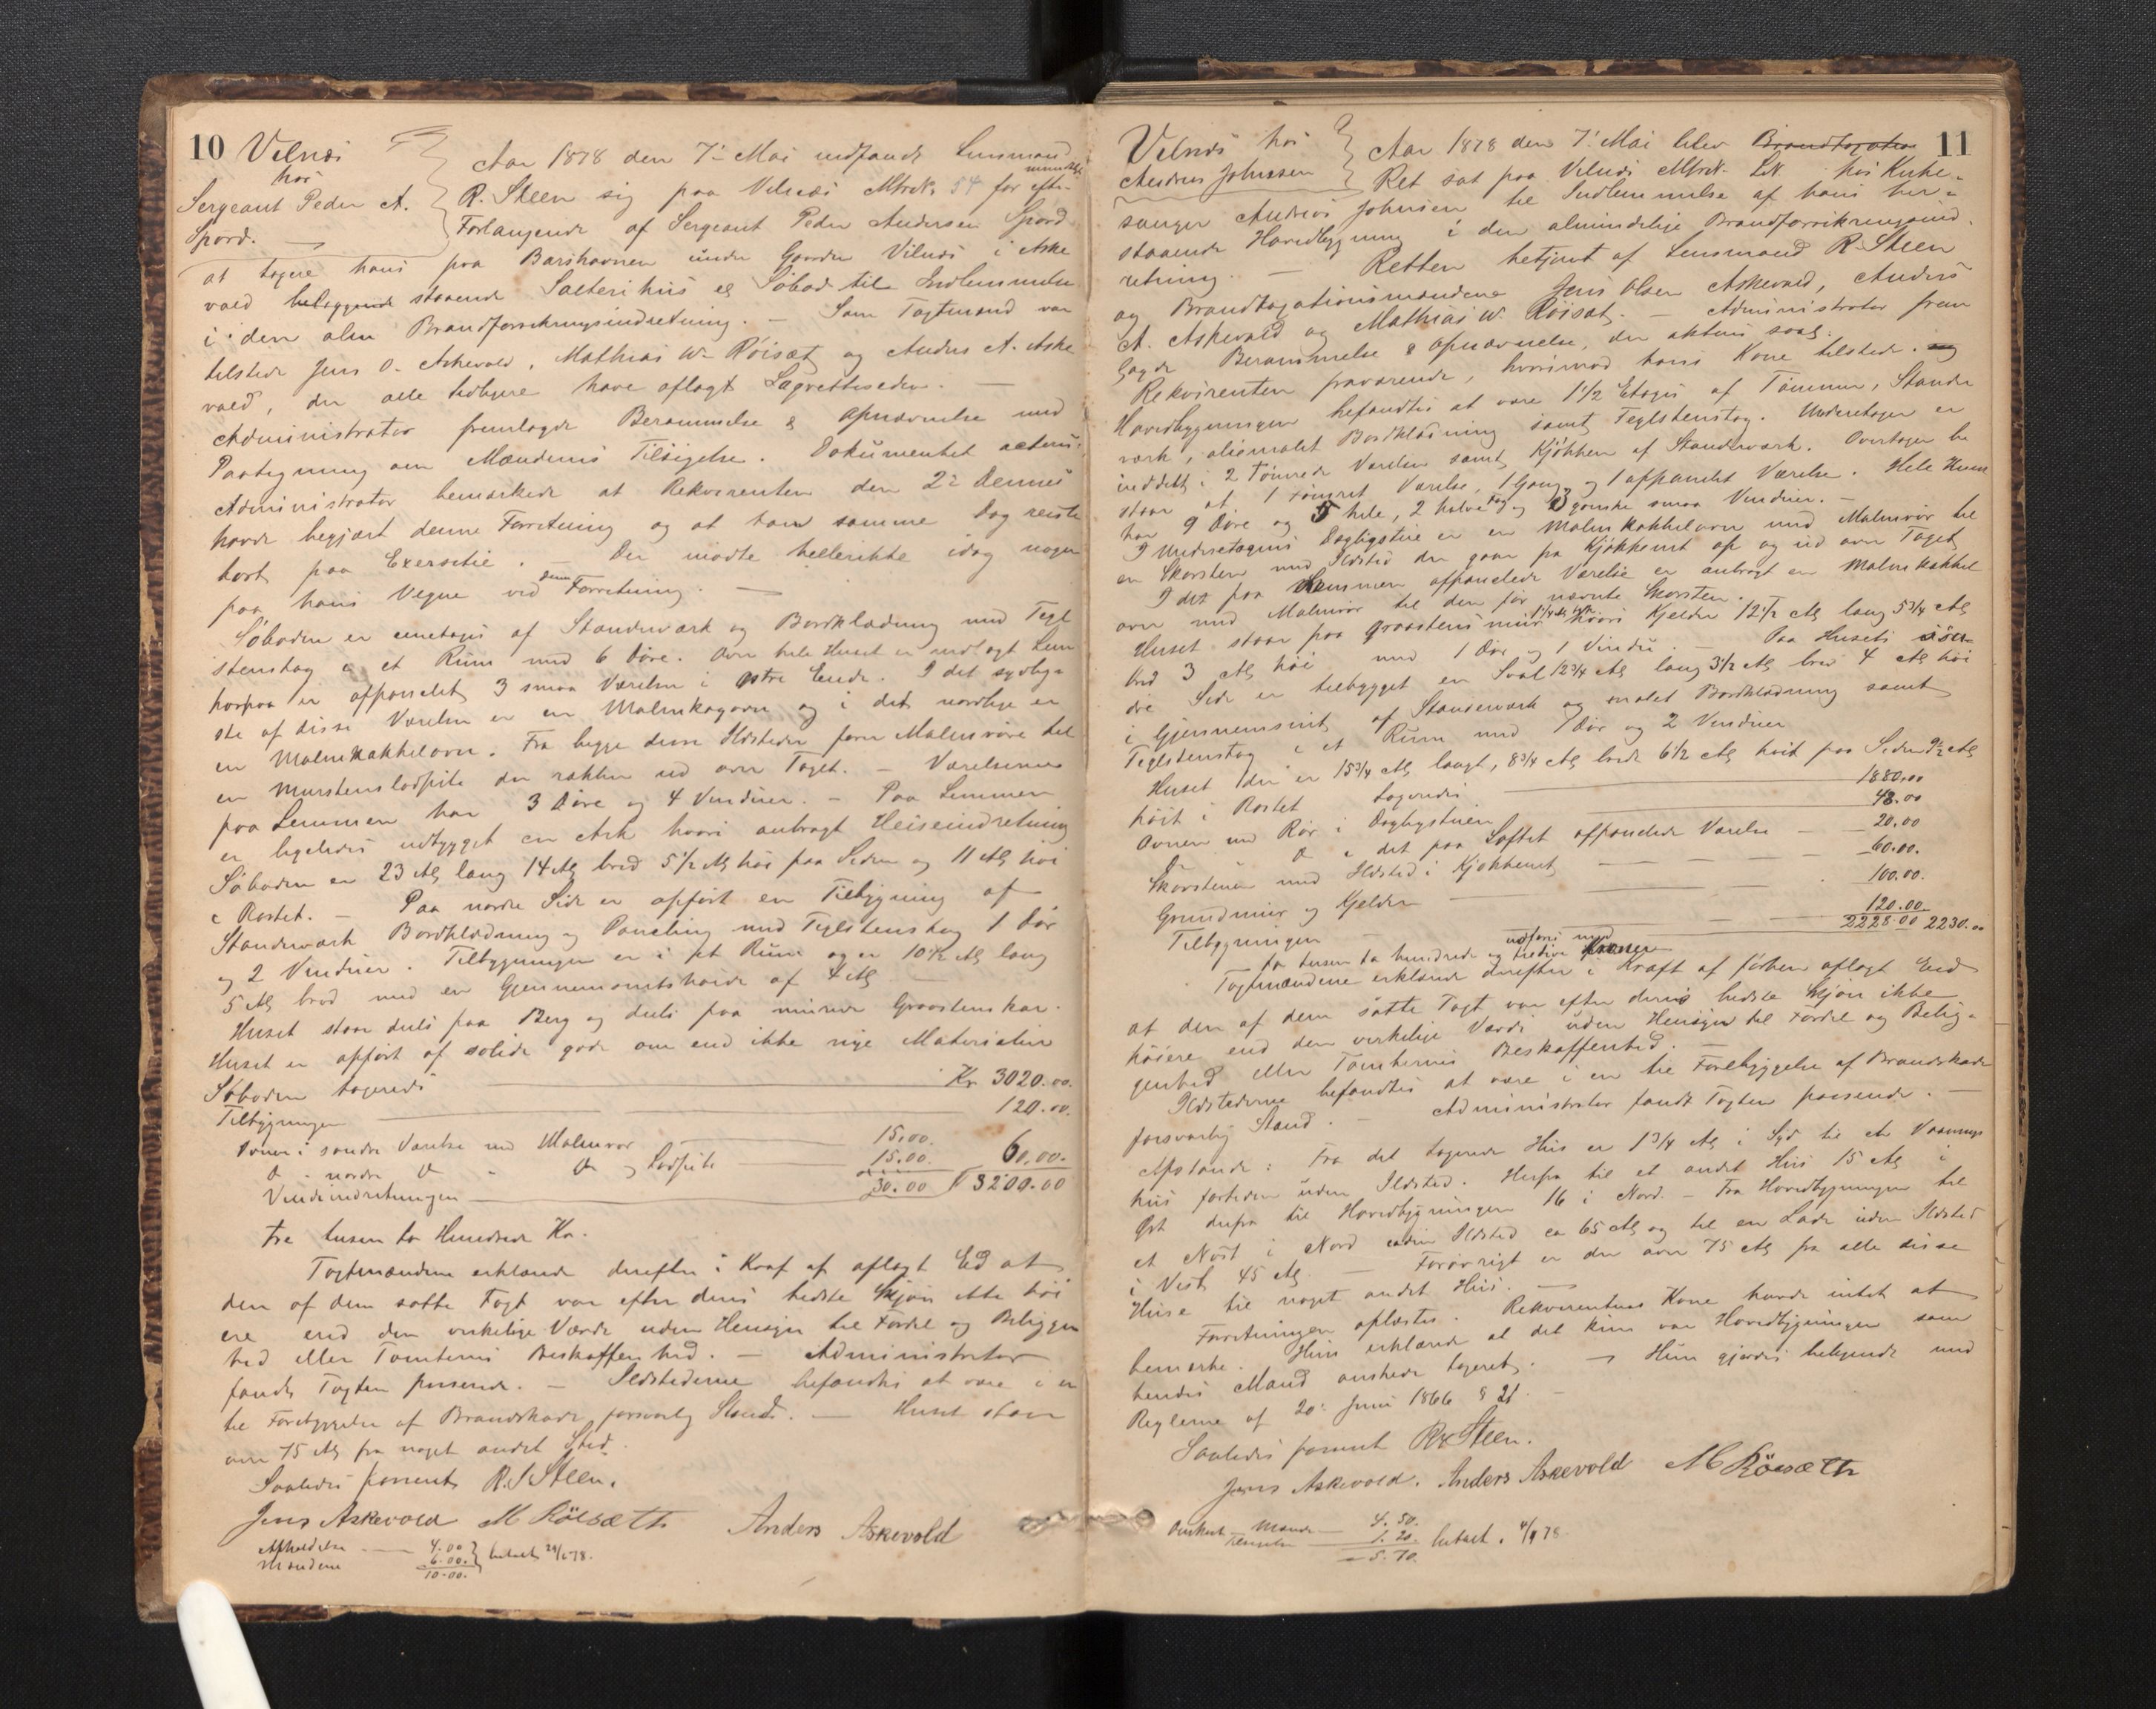 10 Velnæs
hos
Sergeant Peder A.
Sjord.
Aar 1878 den 7de Mai indfandt Lensmand
R. Steen sig paa Velnæs Mtrk. 54 for efter mundtlig
Forlangende af Sergeant Peder Andersen
at taxere hans paa Barshavnen under Gaarden Vilnæs i Aske
vold beliggende staaende Salterihus og Søbod til Indlemmelse
i den alm Brandforsikringsindretning. – Som Taxtmænd var
tilstede Jens O. Askevold, Mathias W. Röisæt og Anders A. Aske
vold, der alle tidligere have aflagt Lagretteseden. –
Administrator fremlagde Berammelse & Opnævnelse med
Paategning om Mændenes Tilsigelse. Dokumentet acteres.
Administrator bemærkede at Rekvirenten den 2den Dennes
havde begjært denne Forretning og at han samme Dag reiste
bort paa Exersitie. – Der mødte hellerikke idag nogen
paa hans Vegne ved denne Forretning. –
Søboden er eenetages af Standerværk og Bordklædning med Tegl
stenstag i et Rum med 6 Døre. Over hele Huset er indlagt Lem
hvorpaa er afpanelet 3 smaa Værelser i østre Ende. I det sydlig-
ste af disse Værelser er en Malmkogeovn og i det nordlige er
en Malmkakkelovn. Fra begge disse Ildsteder fører Malmrøre til
en Murstenslodpibe der rækker ud over Taget. – Værelserne
paa Lemmen har 3 Døre og 4 Vinduer. – Paa Lemmen
er ligeledes udbygget en Ark hvori anbragt Heiseindretning
Søboden er 23 Al lang 14 Al bred 5 1/2 Al høi paa Siden og 11 Al høi
i Røstet. – Paa nordre Side er opført en Tilbygning af
Standerværk Bordklædning og Paneling med Teglstenstag 1 Dør
og 2 Vinduer. Tilbygningen er i et Rum og er 10 1/2 Al lang
5 Al bred med en Gjennemsnitshøide af 4 Al –
Huset staar dels paa Berg og dels paa murede Graastenskar.
Huset er opført af solide gode om end ikke nye Materialier
Søboden taxeredes Kr. 3020.00.
Tilbygningen 120.00.
Ovnen i søndre Værelse med Malmrør 15.00.
do - nordre do " do og Lodpibe 15.00. 60.00.
Vindeindretningen 30.00 3200.00
tre tusen to Hundrede Kr.
Taxtmændene erklærede derefter i Kraf af aflagt Ed at
den af dem satte Taxt var efter deres bedste Skjøn ikke høi
ere end den virkelige Værde uden Hensyn til Fordel og Beliggen
hed eller Tomternes Beskaffenhed. – Administrator
fandt Taxten passende. – Ildstederne befandtes at være i en
til Forebyggelse af Brandskade forsvarlig Stand. – Huset staar
over 75 Al fra noget andet Sted.
Saaledes passeret R. S Steen.
Jens Askevold M Röisæth Anders Askevold
Afholdelse 4.00
Mændene 6.00. betalt
10.00.
Velnæs hos 11
Andreas Johnsen
Aar 1878 den 7de Mai blev Brandtaxation
Ret sat paa Velnæs Mtrk. hos Kirke-
sanger Andreas Johnsen til Indlemmelse af hans her-
staaende Hovedbygning i den almindelige Brandforsikringsind
retning. – Retten betjent af Lensmand R. Steen
og Brandtaxationsmændene Jens Olsen Askevold, Anders
A. Askevold og Mathias W. Röisæt. – Administrator frem
lagde Berammelse & Opnævnelse, der akteres saal.
Rekvirenten fraværende, hvorimod hans Kone tilstede.
Hovedbygningen befandtes at være 1 1/2 Etages af Tømmer, Stander
værk, oliemalet Bordklædning samt Teglstenstag. Underetagen er
inddelt i 2 tømrede Værelser samt Kjøkken af Standerværk. Overetagen be
staar af 1 tømret Værelse, 1 Gang og 1 afpanelet Værelse. Hele Huset
har 9 Døre og 5 hele, 2 halve Fag og 3 ganske smaa Vinduer. –
I Underetagens Dagligstue er en Malmkakkelovn med Malmrør til
en Skorsten med Ildsted der gaar fra Kjøkkenet op og ud over Taget
I det paa Lemmen afpanelede Værelse er anbragt en Malmkakkel
ovn med Malmrør til den før nævnte Skorsten.
Huset staar paa Graastens mur 1 1/4 Al høi hvori Kjelder 12 1/2 Al lang 5 3/4 Al
bred 3 Al høi med 1 Dør og 1 Vindu. – Paa Husets
dre Side er tilbygget en Sval 12 3/4 Al lang 3 1/2 Al bred 4 Al høi
i Gjennemsnit af Standerværk og malet Bordklædning samt
Teglstenstag i et Rum med 1 Dør og 2 Vinduer
Huset der er 15 3/4 Al langt, 8 3/4 Al bredt 6 1/2 Al høit paa Siden 9 1/2 Al
høit i Røstet taxeredes 1880.00
Ovnen med Rør i Dagligstuen 48.00
do i det paa Loftet afpanelede Værelse 20.00
Skorstenen med Ildsted i Kjøkkenet 60.00.
Grundmur og Kjelder 100.00.
Tilbygningen 120.00.
2228.00 2230.00
udføres med
to tusen to hundrede og tredive Kroner
Taxtmændene erklærede derefter i Kraft afførhen aflagt Eed
at den af dem satte Taxt var efter deres bedste Skjøn ikke
høiere end den virkelige Værdi uden Hensyn til Fordel og Belig-
genhed eller Tomternes Beskaffenhed. –
Ildstederne befandtes at være i en til Forebyggelse af Brandskade
forsvarlig Stand. – Administrator fandt Taxten passende. –
Afstande: Fra det taxerede Hus er 1 3/4 Al i Syd til et Vaanings
hus fortiden uden Ildsted. Herfra til et andet Hus 15 Al i
Øst derfra til Hovedbygningen 16 i Nord. – Fra Hovedbygningen til
et Nøst i Nord uden Ildsted ca 65 Al og til en Lade uden Ildsted
i Vest 45 Al. – Forøvrigt er der over 75 Al fra alle disse
Huse til noget andet Hus. –
Forretningen oplæstes. Rekvirentens Kone havde intet at
bemærke. Hun erklærede at det kun var Hovedbygningen som
hendes Mand ønskede taxeret. – Hun gjordes bekjendt med
Reglerne af 20de Juni 1866 § 21. –
Saaledes passeret R. S Steen.
Jens Askevold. Anders Askevold M Röisæth
Mænd 4.50.
1.20 betalt
5.70.